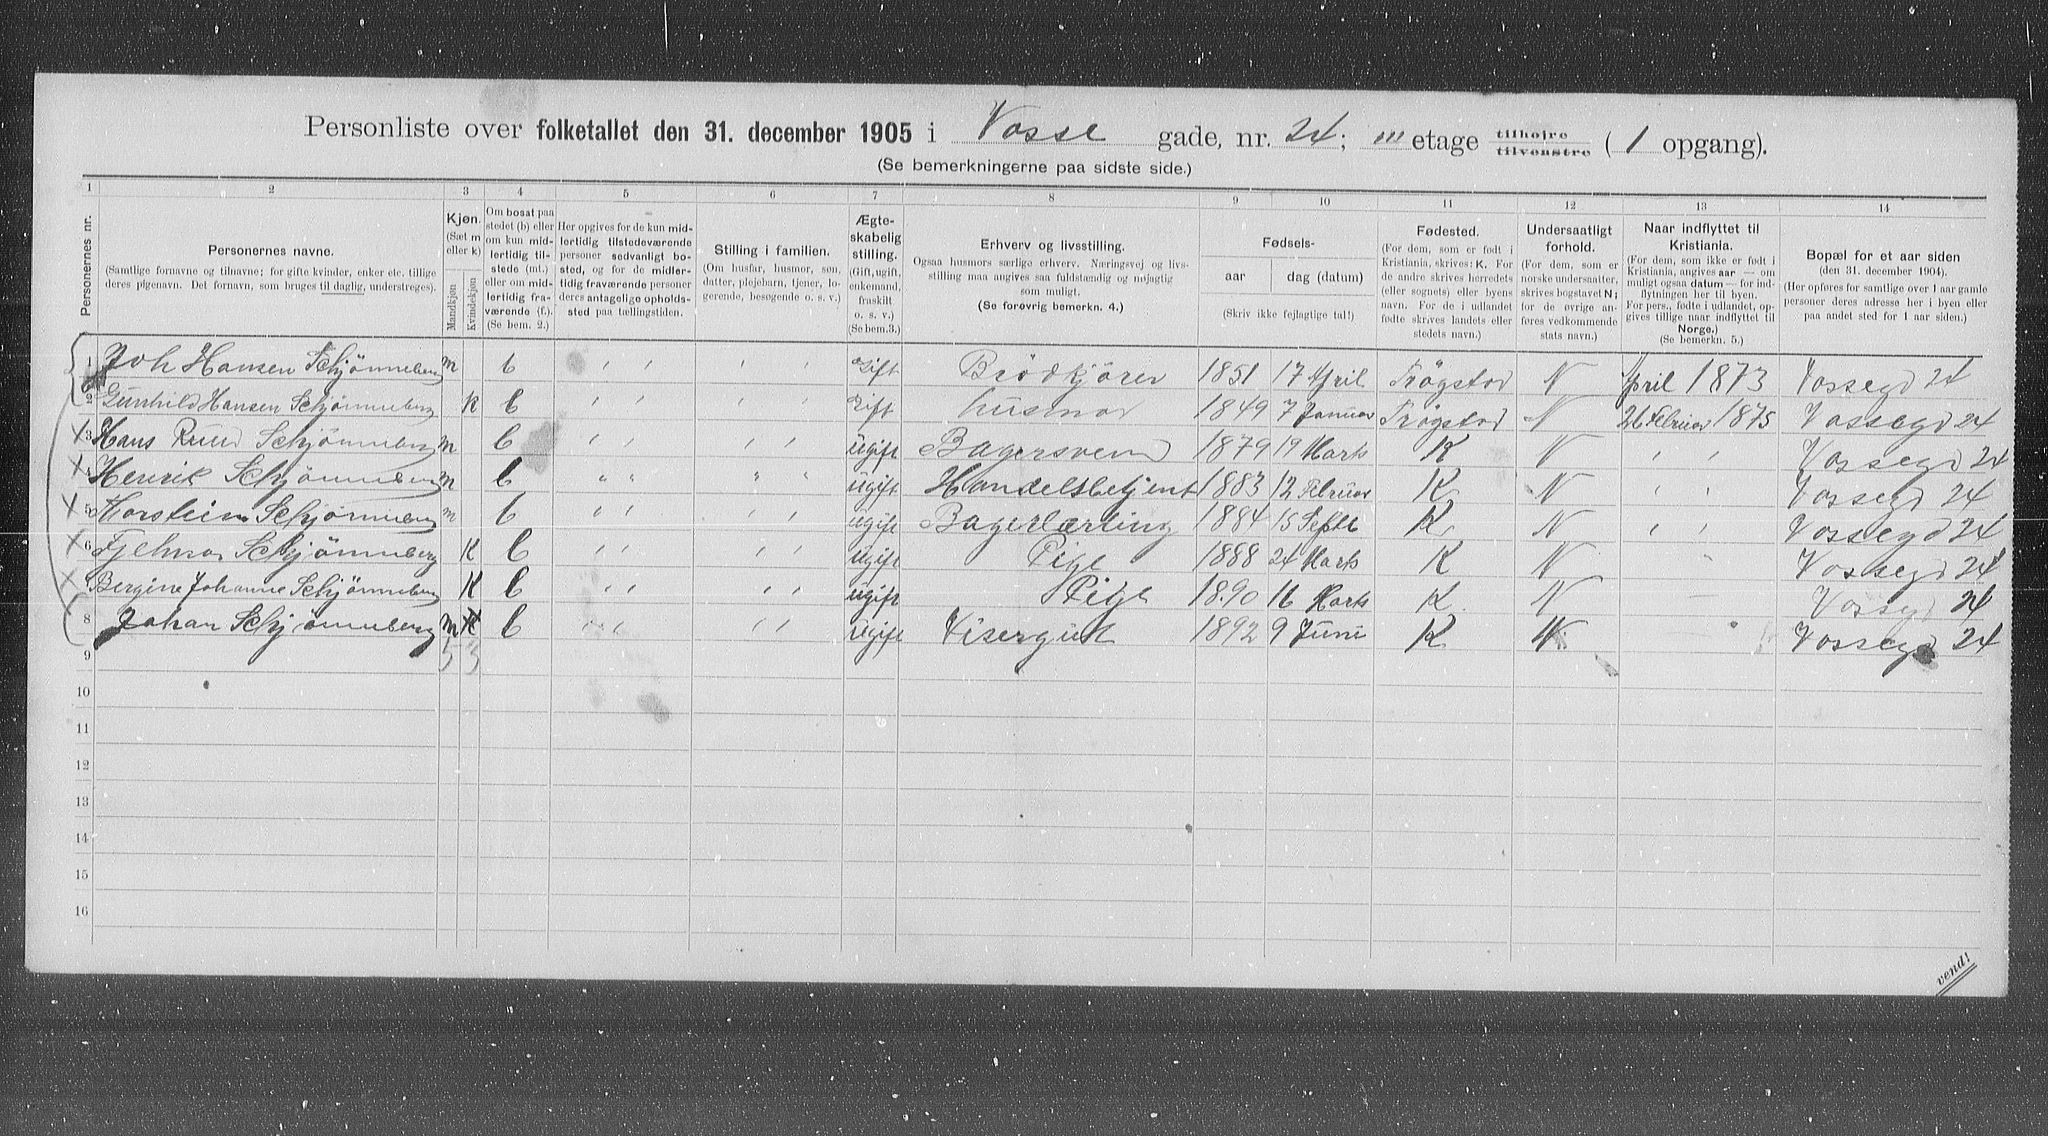 Personliste over folketallet den 31. december 1905 i Vosse gade, nr. 24; III etage tilhøjre tilvenstre (1 opgang).
(Se bemerkningerne paa sidste side.)
1 2 3 4 5 6 7 8 9 10 11 12 13 14
Personernes nr.
Personernes navne.
(Samtlige fornavne og tilnavne; for gifte kvinder, enker etc. tillige deres pigenavn. Det fornavn, som bruges til daglig, understreges).
Kjøn. (Sæt m eller k)
Mandkjøn Kvindekjøn
Om bosat paa stedet (b) eller om kun midlertidig tilstede (mt.) eller om midlertidig fraværende (f.). (Se bem. 2.)
Her opgives for de kun midlertidig tilstedeværende personer sedvanligt bosted, og for de midlertidig fraværende personer deres antagelige opholdssted paa tællingstiden.
Stilling i familien.
(Om husfar, husmor, søn, datter, plejebarn, tjener, logerende, besøgende o. s. v.)
Ægteskabelig stilling.
(Gift, ugift, enkemand, fraskilt o. s. v.) (Se bem. 3.)
Erhverv og livsstilling.
Ogsaa husmors særlige erhverv. Næringsvej og livsstilling maa angives saa fuldstændig og nøjagtig som muligt.
(Se forøvrig bemerkn. 4.)
Fødsels-
aar dag (datum)
(Skriv ikke fejlagtige tal!)
Fødested.
(For dem, som er født i Kristiania, skrives: K. For de andre skrives herredets (eller sognets) eller byens navn. For de i udlandet fødte skrives landets eller stedets navn.)
Undersaatligt forhold.
(For dem, som er norske undersaatter, skrives bogstavet N; for de øvrige anføres vedkommende stats navn.)
Naar indflyttet til Kristiania.
(For dem, som ikke er født i Kristiania, angives aar — om muligt ogsaa datum — for indflytningen her til byen. For pers., fødte i udlandet, opgives tillige naar indflyttet til Norge.)
(Se bemerkn. 5.)
Bopæl for et aar siden
(den 31. december 1904).
(Her opføres for samtlige over 1 aar gamle personer deres adresse her i byen eller paa andet sted for 1 aar siden.)
1 Joh Hansen Schjønneberg m b " " Gift Brødkjører 1851 17 April Trøgstad N April 1873 Vossegd 24
2 Gunhild Hansen Schjønneberg K b " " Gift husmor 1849 7 Januar Trøgstad N 26 Februar 1875 Vossegd 24
3 Hans Ruud Schjønneberg m b " " ugift Bagersvend 1879 19 Marts K N " " Vossegd 24
4 Henrik Schjønneberg m b " " ugift Handelsbetjent 1883 12 Februar K N " " Vossegd 24
5 Thorstein Schjønneberg m b " " ugift Bagerlærling 1884 15 Septb K N " " Vossegd 24
6 Schjønneberg K b " " ugift Pige 1888 24 Marts K N Vossegd 24
7 Bergine Johanne Schjønneberg K b " " ugift Pige 1890 16 Marts K N Vossegd 24
8 Johan Schjønneberg m b " " ugift Visergut 1892 9 Juni K N Vossegd 24
9 5 3
10
11
12
13
14
15
16
vend!